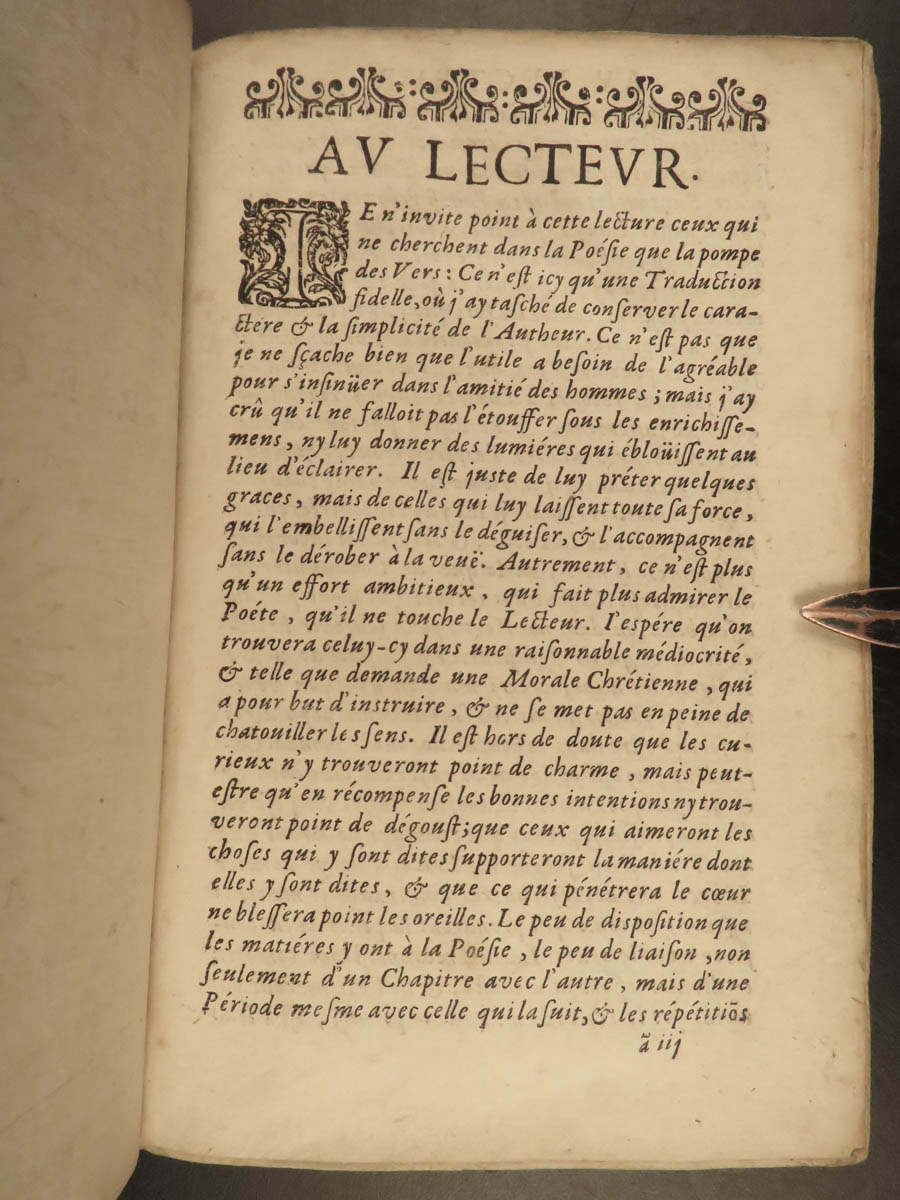 AV LECTEVR.
IE n'invite point à cette lecture ceux qui
ne cherchent dans la Poésie que la pompe
des Vers : Ce n'eſt icy qu'une Traduction
fidelle, où j'ay taſché de conſerver le cara-
ctere & la ſimplicité de l'Autheur. Ce n'eſt pas que
je ne ſçache bien que l'utile a beſoin de l'agréable
pour s'inſinüer dans l'amitié des hommes ; mais j'ay
crû qu'il ne falloit pas l'étouffer ſous les enrichiſſe-
mens, ny luy donner des lumiéres qui ébloüiſſent au
lieu d'éclairer. Il eſt juste de luy préter quelques
graces, mais de celles qui luy laiſſent toute ſa force,
qui l'embelliſſent ſans le déguiſer, & l'accompagnent
ſans le dérober à la veuë. Autrement, ce n'eſt plus
qu'un effort ambitieux, qui fait plus admirer le
Poéte, qu'il ne touche le Lecteur. I'eſpére qu'on
trouvera celuy-cy dans une raiſonnable médiocrité,
& telle que demande une Morale Chrétienne, qui
a pour but d'instruire, & ne ſe met pas en peine de
chatouiller les ſens. Il eſt hors de doute que les cu-
rieux n'y trouveront point de charme, mais peut-
eſtre qu'en récompenſe les bonnes intentions n'y trou-
veront point de dégouſt; que ceux qui aimeront les
choſes qui y ſont dites ſupporteront la maniére dont
elles y ſont dites, & que ce qui pénétrera le cœur
ne bleſſera point les oreilles. Le peu de diſpoſition que
les matiéres y ont à la Poéſie, le peu de liaiſon, non
ſeulement d'un Chapitre avec l'autre, mais d'une
Période meſme avec celle qui la ſuit, & les répétitiõs
ã iij